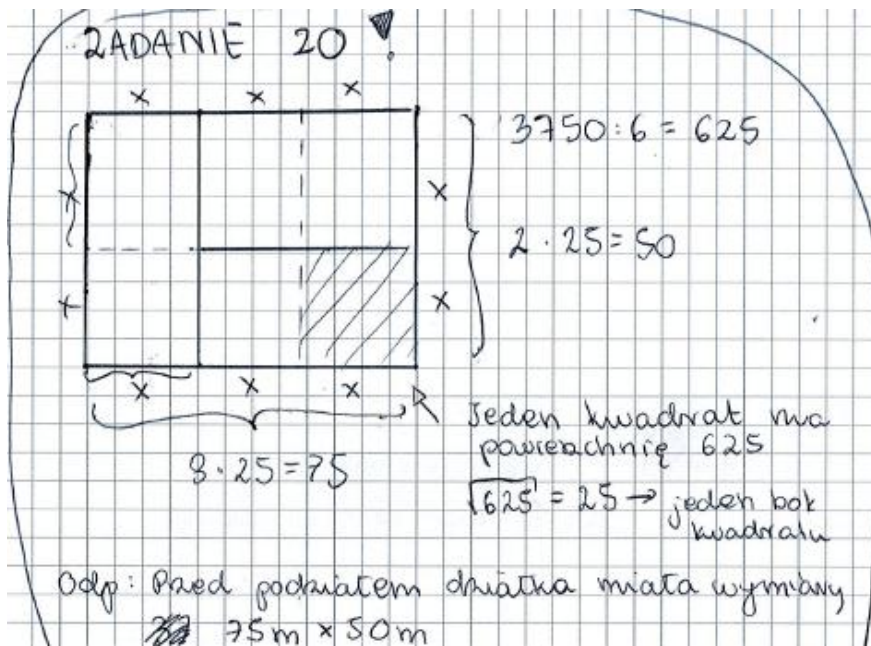 ZADANIE 20 !
x x x
3750 : 6 = 625
x
x
2 · 25 = 50
x
x
x x x
Jeden kwadrat ma
powierzchnię 625
3 · 25 = 75
√625 = 25 → jeden bok
kwadratu
Odp: Przed podziałem działka miała wymiary
75m × 50m